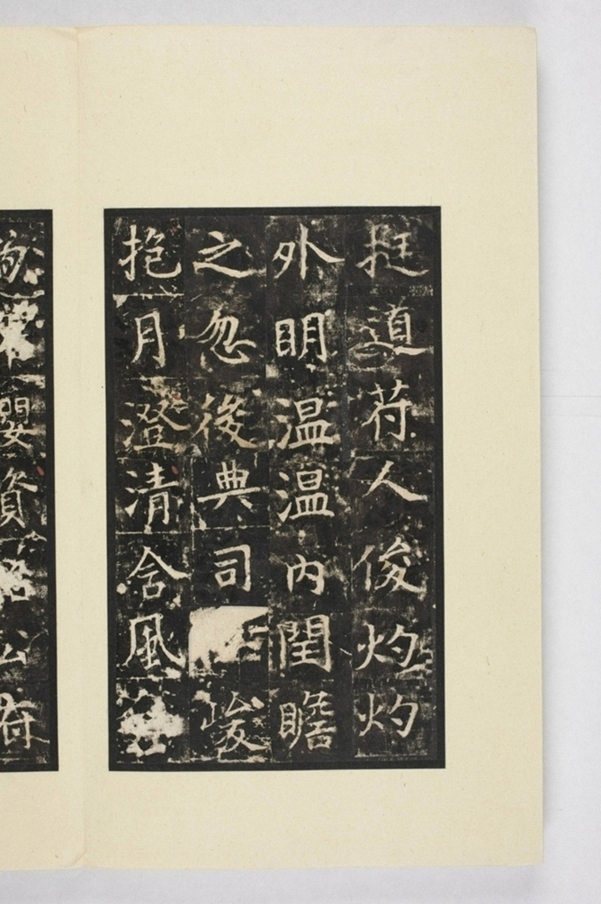 挺道苻人俊灼灼
外明温温内閏瞻
之忽後典司峻
抱月澄清含風
嬰資
公府